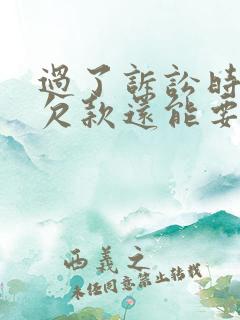 過了訴訟時
欠款還能要
西義之
未经同意禁止转载